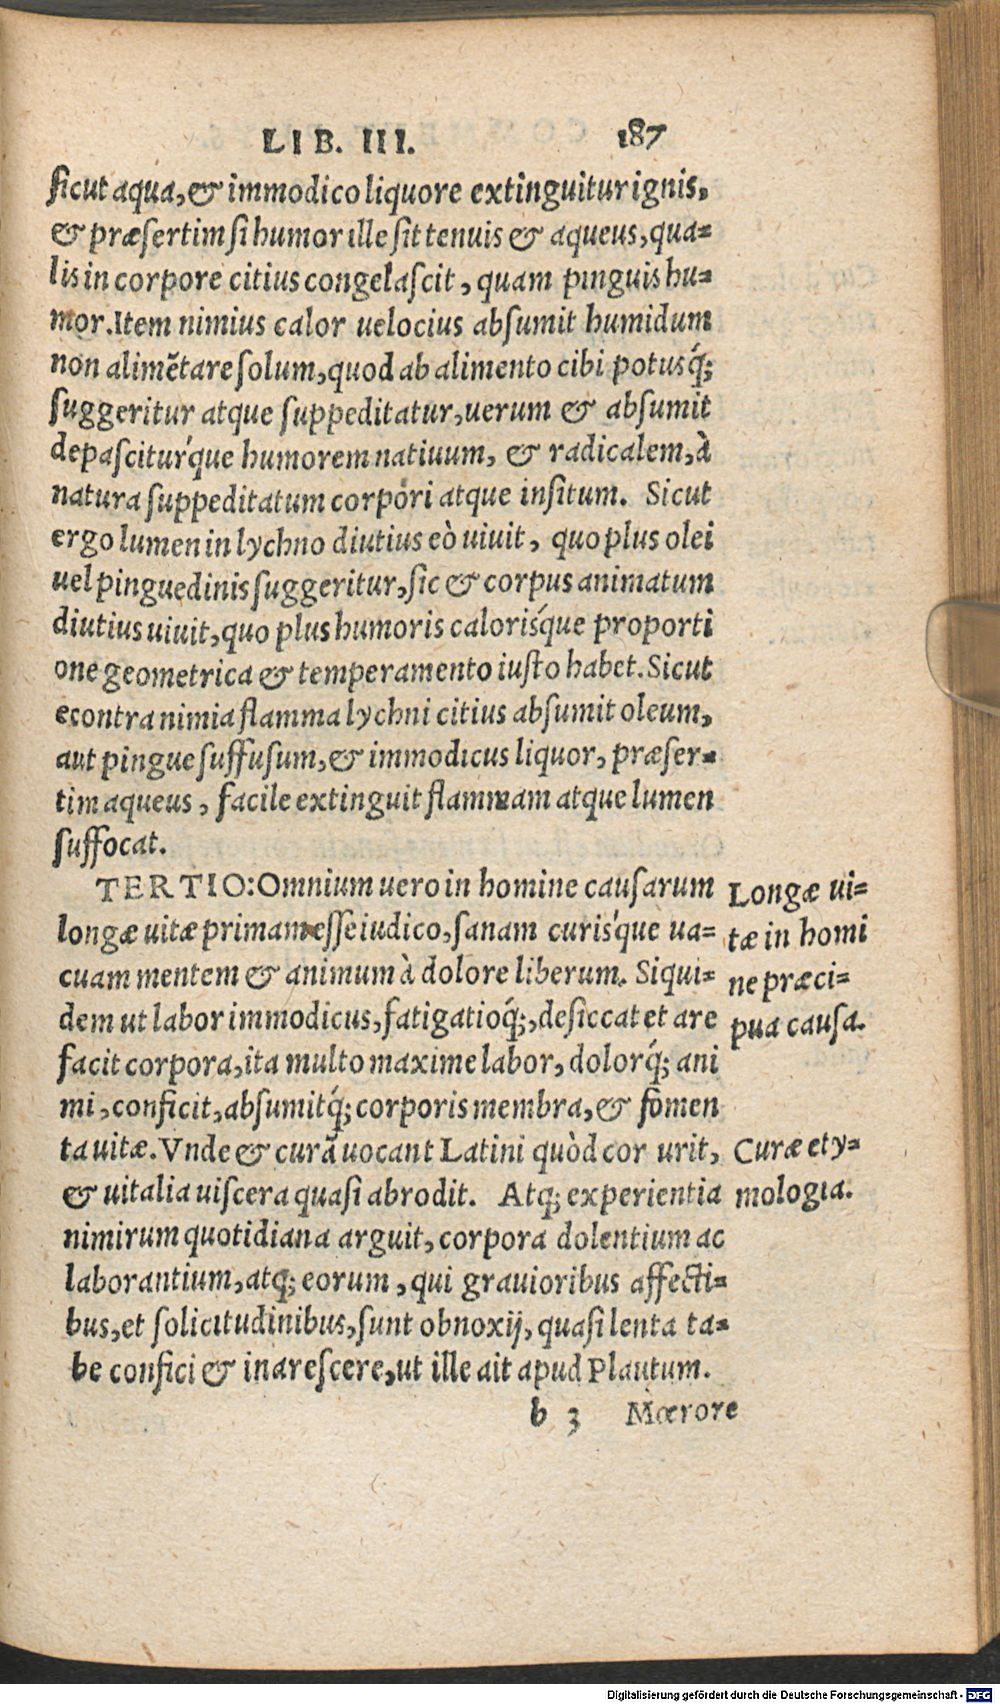 LIB. III. 187
sicut aqua, & immodico liquore extinguitur ignis,
& præsertim si humor ille sit tenuis & aqueus, qua-
lis in corpore citius congelascit, quam pinguis hu-
mor. Item nimius calor uelocius absumit humidum
non alimẽtare solum, quod ab alimento cibi potusq́;
suggeritur atque suppeditatur, uerum & absumit
depasciturq́ue humorem natiuum, & radicalem, à
natura suppeditatum corpori atque insitum. Sicut
ergo lumen in lychno diutius eò uiuit, quo plus olei
uel pinguedinis suggeritur, sic & corpus animatum
diutius uiuit, quo plus humoris calorisq́ue proporti
one geometrica & temperamento iusto habet. Sicut
econtra nimia flamma lychni citius absumit oleum,
aut pingue suffusum, & immodicus liquor, præser-
tim aqueus, facile extinguit flammam atque lumen
suffocat.
TERTIO: Omnium uero in homine causarum
longæ uitæ primam esse iudico, sanam curisq́ue ua-
cuam mentem & animum à dolore liberum. Siqui-
dem ut labor immodicus, fatigatioq́;, desiccat et are
facit corpora, ita multo maxime labor, dolorq́; ani
mi, conficit, absumitq́; corporis membra, & fomen
ta uitæ. Vnde & curã uocant Latini quòd cor urit,
& uitalia uiscera quasi abrodit. Atq; experientia
nimirum quotidiana arguit, corpora dolentium ac
laborantium, atq; eorum, qui grauioribus affecti-
bus, et solicitudinibus, sunt obnoxij, quasi lenta ta-
be confici & inarescere, ut ille ait apud Plautum.
b 3 Mœrore
Longæ ui-
tæ in homi
ne præci-
pua causa.
Curæ ety-
mologia.
Digitalisierung gefördert durch die Deutsche Forschungsgemeinschaft - DFG